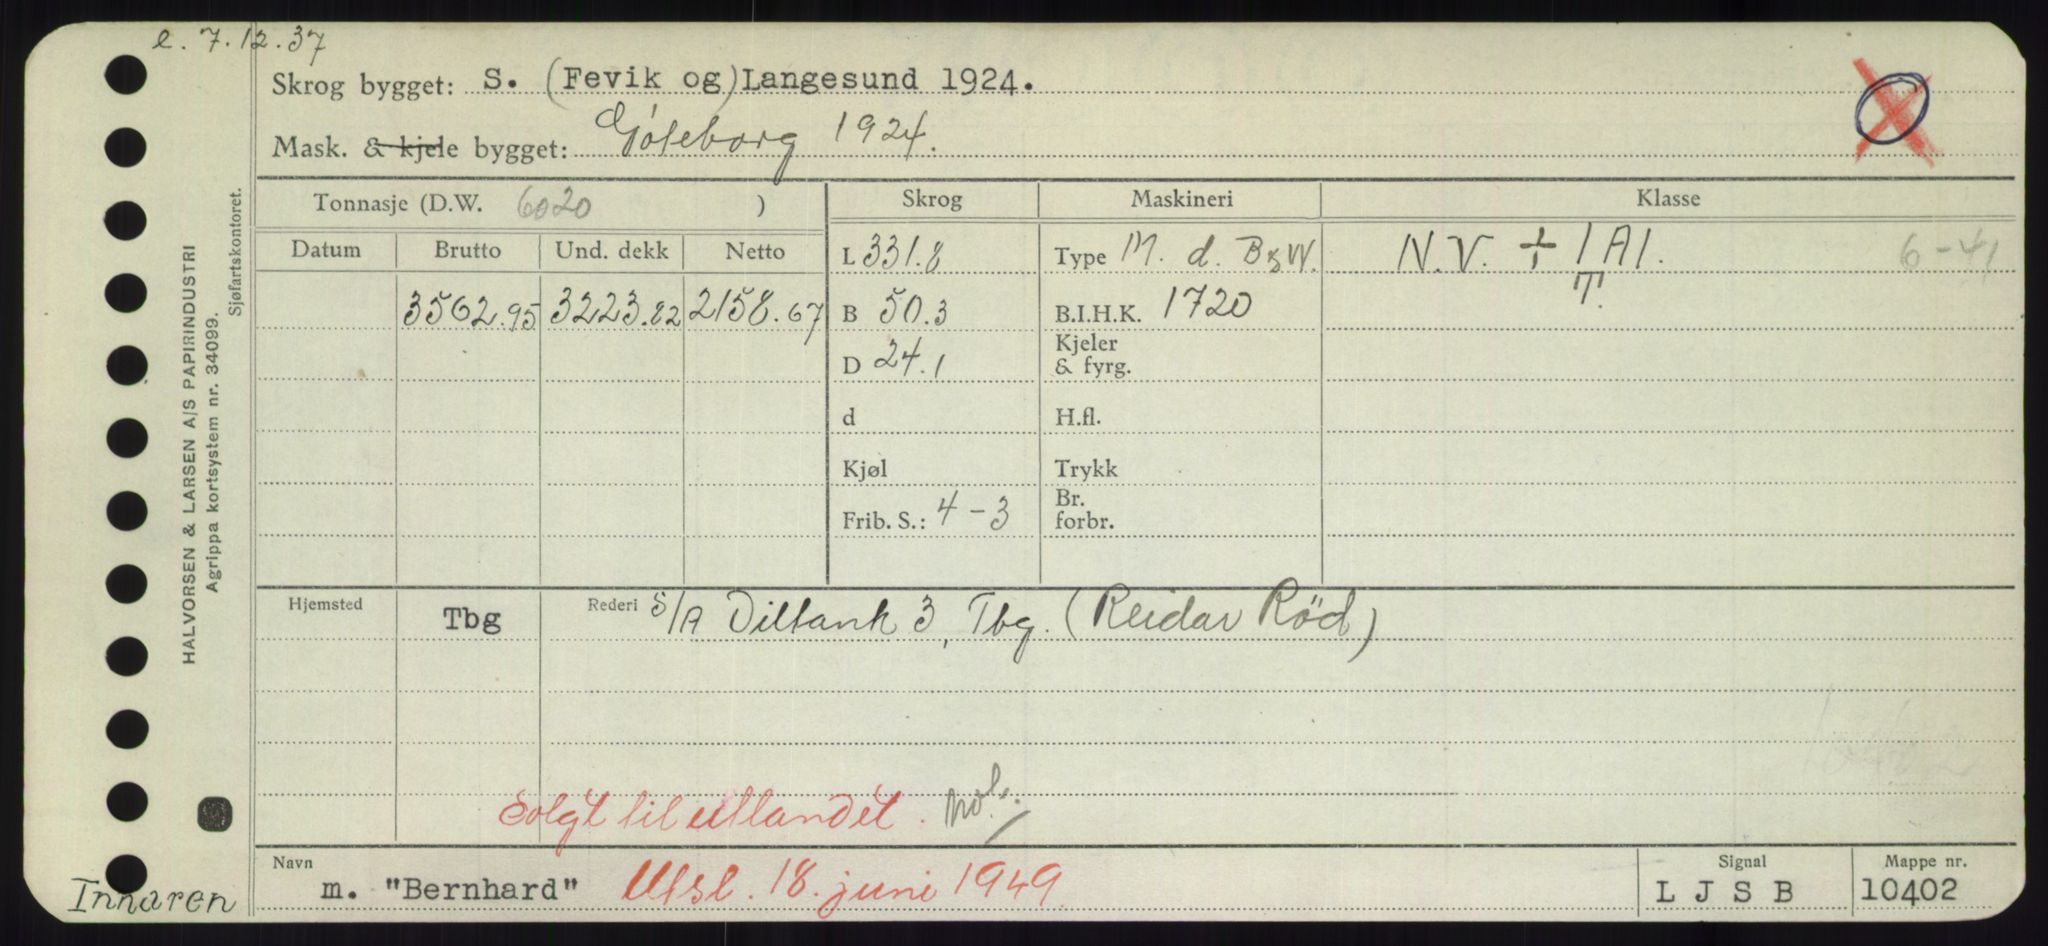 e. 7.12.37
Skrog bygget: S. (Fevik og) Langesund 1924.
Mask. & kjele bygget: Göteborg 1924.
Tonnasje (D.W. 6020 )
Skrog
Maskineri
Klasse
Datum
Brutto
Und. dekk
Netto
L 331.8
Type M. d. B&W.
N.V. + 1A1.
6-41
T.
3562.95
3223.82
2158.67
B 50.3
B.I.H.K. 1720
D 24.1
Kjeler
& fyrg.
d
H.fl.
Kjøl
Trykk
Frib. S.: 4-3
Br.
forbr.
Hjemsted
Tbg
Rederi S/A Oiltank 3, Tbg. (Reidar Rød)
Solgt til utlandet.
Navn
m. "Bernhard" Utsl. 18. juni 1949
Signal
L J S B
Mappe nr.
10402
HALVORSEN & LARSEN A/S PAPIRINDUSTRI
Agrippa kortsystem nr. 34099.
Sjøfartskontoret.
Innaren